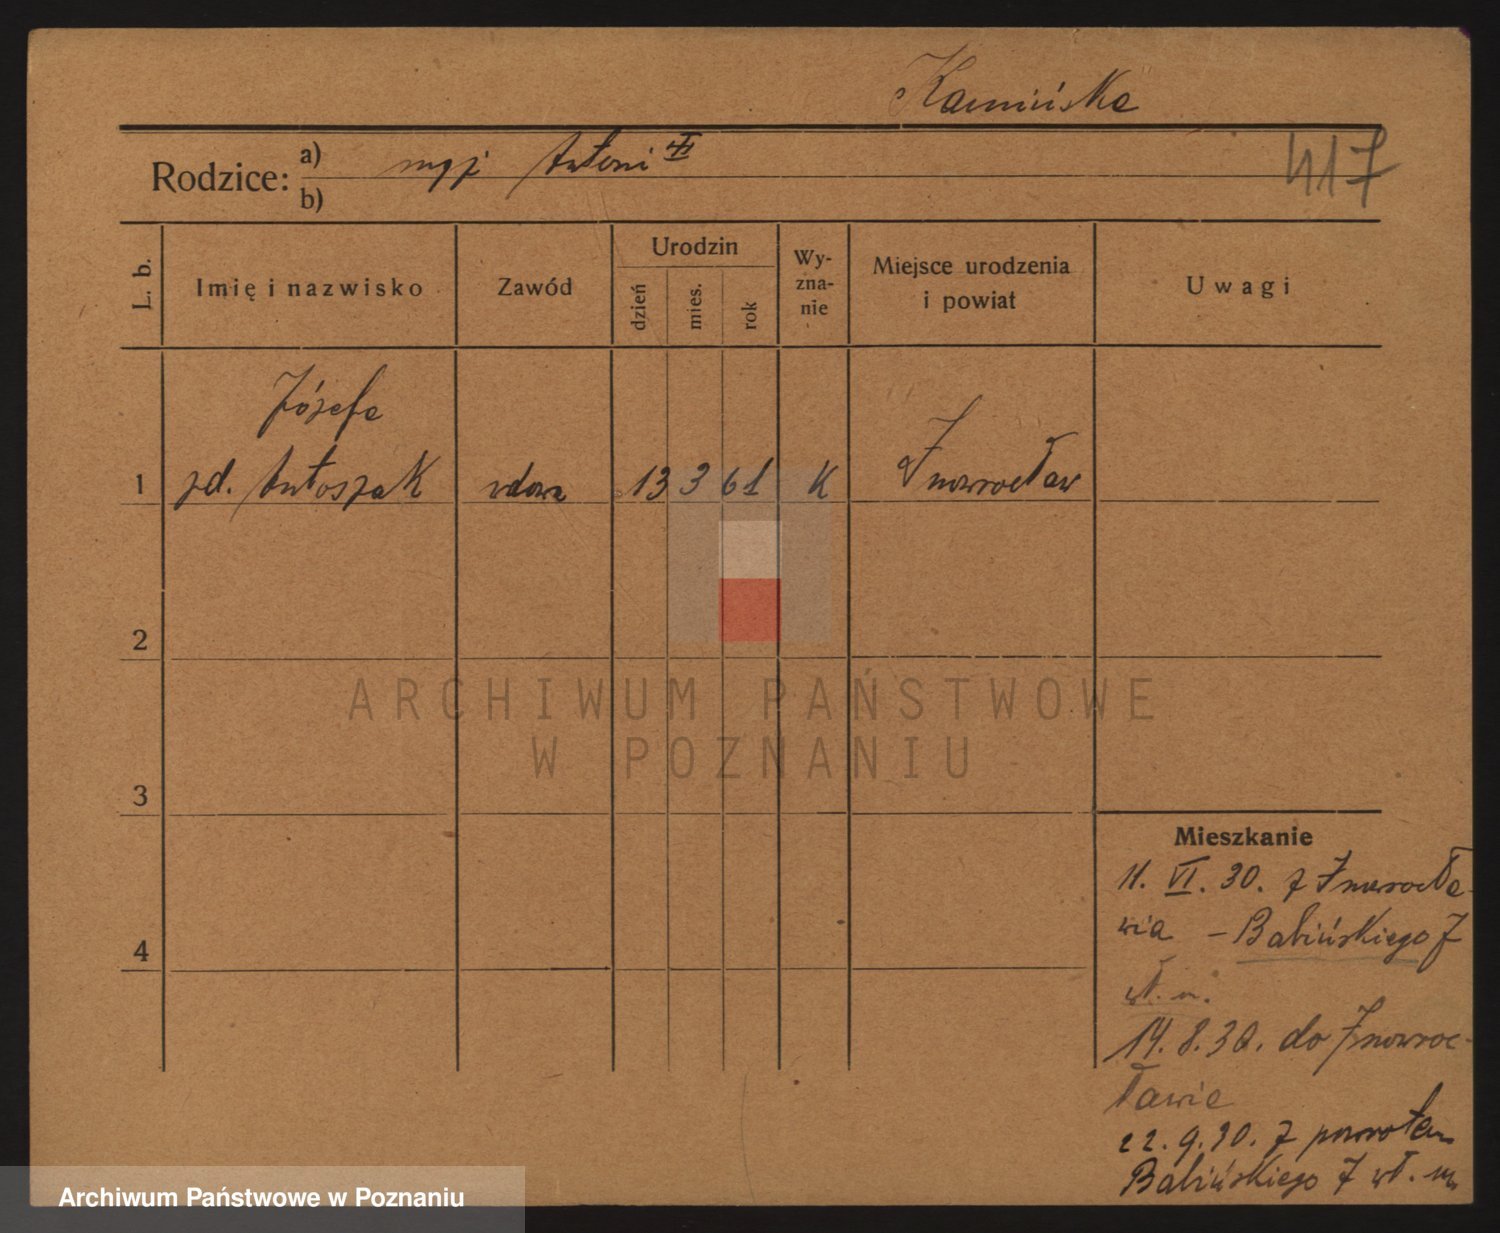 Kamińska
417
Rodzice: a) mąż Antoni
b)
L. b.
Imię i nazwisko
Zawód
Urodzin
dzień
mies.
rok
Wy-
zna-
nie
Miejsce urodzenia
i powiat
Uwagi
Józefa
1 zd. Antoszak wdowa 13 3 61 K Inowrocław
2
3
4
ARCHIWUM PAŃSTWOWE
W POZNANIU
Mieszkanie
11. VI. 30. z Inowrocła-
wia – Babińskiego 7
wł. m.
14. 8. 30. do Inowroc-
ławia
22. 9. 30. z powrotem
Babińskiego 7 wł. m
Archiwum Państwowe w Poznaniu